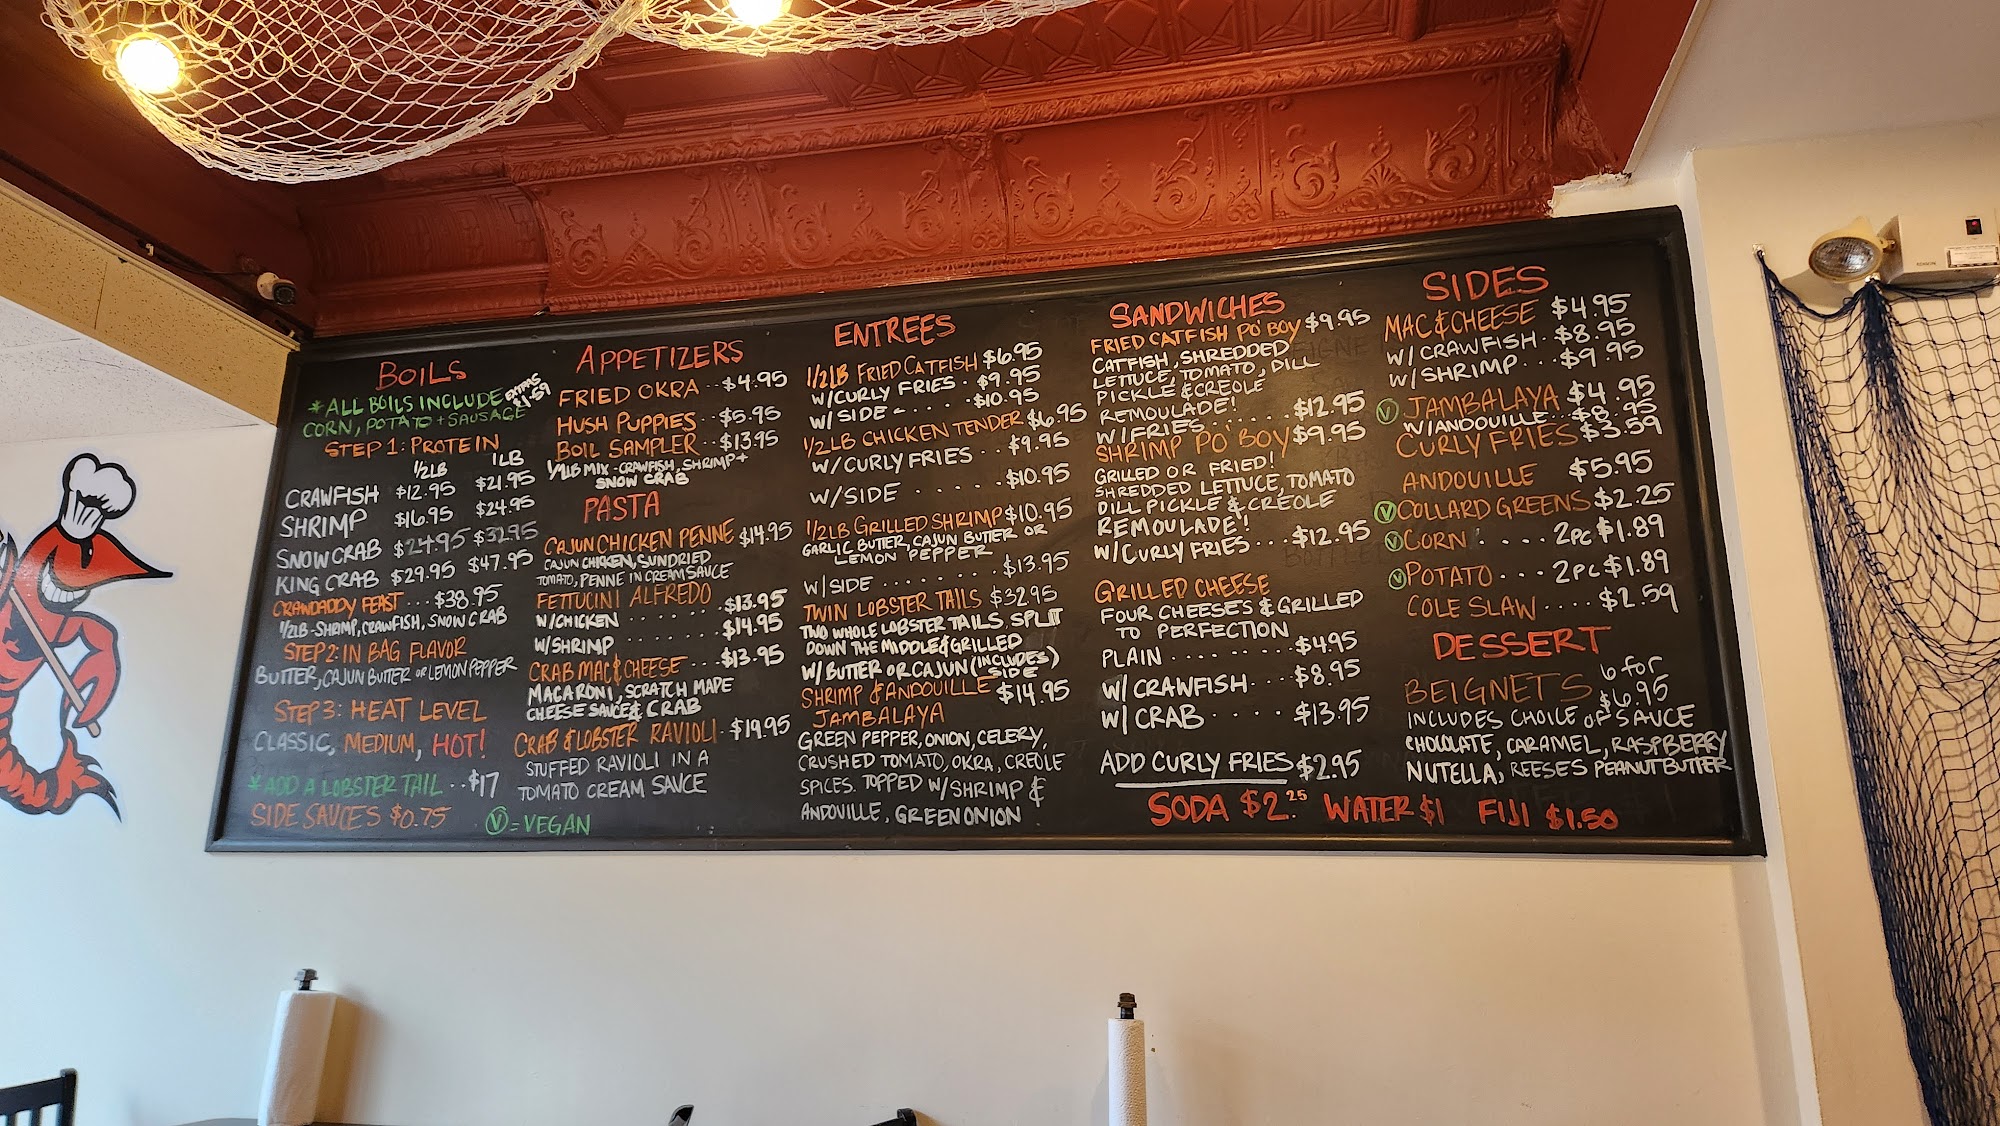 BOILS
*ALL BOILS INCLUDE EXTRAS $1.59
CORN, POTATO + SAUSAGE
STEP 1: PROTEIN
1/2LB 1LB
CRAWFISH $12.95 $21.95
SHRIMP $16.95 $24.95
SNOW CRAB $24.95 $32.95
KING CRAB $29.95 $47.95
CRAWDADDY FEAST...$38.95
1/2LB-SHRIMP, CRAWFISH, SNOW CRAB
STEP 2: IN BAG FLAVOR
BUTTER, CAJUN BUTTER OR LEMON PEPPER
STEP 3: HEAT LEVEL
CLASSIC, MEDIUM, HOT!
*ADD A LOBSTER TAIL..$17
SIDE SAUCES $0.75
APPETIZERS
FRIED OKRA..$4.95
HUSH PUPPIES...$5.95
BOIL SAMPLER..$13.95
LB MIX-CRAWFISH, SHRIMP +
SNOW CRAB
PASTA
CAJUN CHICKEN PENNE $14.95
CAJUN CHICKEN, SUNDRIED
TOMATO, PENNE IN CREAM SAUCE
FETTUCINI ALFREDO
W/CHICKEN.......$13.95
W/SHRIMP.......$14.95
CRAB MAC & CHEESE...$13.95
MACARONI, SCRATCH MADE
CHEESE SAUCE & CRAB
CRAB & LOBSTER RAVIOLI.$19.95
STUFFED RAVIOLI IN A
TOMATO CREAM SAUCE
V = VEGAN
ENTREES
1/2LB FRIED CATFISH $6.95
W/CURLY FRIES.$9.95
W/SIDE-....$10.95
1/2LB CHICKEN TENDER $6.95
W/CURLY FRIES..$9.95
W/SIDE.....$10.95
1/2LB GRILLED SHRIMP $10.95
GARLIC BUTTER, CAJUN BUTTER OR
LEMON PEPPER
W/SIDE.......$13.95
TWIN LOBSTER TAILS $32.95
TWO WHOLE LOBSTER TAILS SPLIT
DOWN THE MIDDLE & GRILLED
W/BUTTER OR CAJUN (INCLUDES SIDE)
SHRIMP & ANDOUILLE $14.95
JAMBALAYA
GREEN PEPPER, ONION, CELERY,
CRUSHED TOMATO, OKRA, CREOLE
SPICES. TOPPED W/SHRIMP &
ANDOVILLE, GREEN ONION
SANDWICHES
FRIED CATFISH PO' BOY $9.95
CATFISH, SHREDDED
LETTUCE, TOMATO, DILL
PICKLE & CREOLE
REMOULADE!
W/FRIES......$12.95
SHRIMP PO' BOY $9.95
GRILLED OR FRIED!
SHREDDED LETTUCE, TOMATO
DILL PICKLE & CREOLE
REMOULADE!
W/CURLY FRIES...$12.95
GRILLED CHEESE
FOUR CHEESES & GRILLED
TO PERFECTION
PLAIN........$4.95
W/CRAWFISH...$8.95
W/CRAB....$13.95
ADD CURLY FRIES $2.95
SIDES
MAC & CHEESE $4.95
W/CRAWFISH.$8.95
W/SHRIMP..$9.95
V JAMBALAYA $4.95
W/ANDOUILLE...$8.95
CURLY FRIES $3.59
ANDOUILLE $5.95
V COLLARD GREENS $2.25
V CORN.....2PC $1.89
V POTATO...2PC $1.89
COLE SLAW....$2.59
DESSERT
BEIGNETS 6 for $6.95
INCLUDES CHOICE OF SAUCE
CHOCOLATE, CARAMEL, RASPBERRY
NUTELLA, REESES PEANUT BUTTER
SODA $2.25 WATER $1 FIJI $1.50